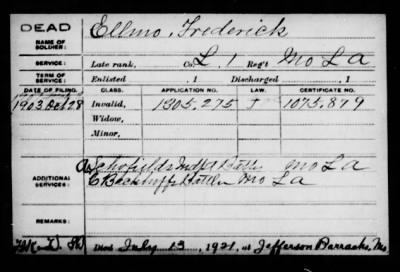 DEAD
NAME OF SOLDIER: Ellmo, Frederick
SERVICE: Late rank, Co. L, 1 Reg't Mo L A
TERM OF SERVICE: Enlisted , 1 Discharged , 1
DATE OF FILING. CLASS. APPLICATION NO. LAW. CERTIFICATE NO.
1903 Oct 28 Invalid, 1305.275 1075.879
Widow,
Minor,
ADDITIONAL SERVICES: A Schofields Batt Mo L A
E Mo L A
REMARKS:
Died July 13, 1921, at Jefferson Barracks, Mo